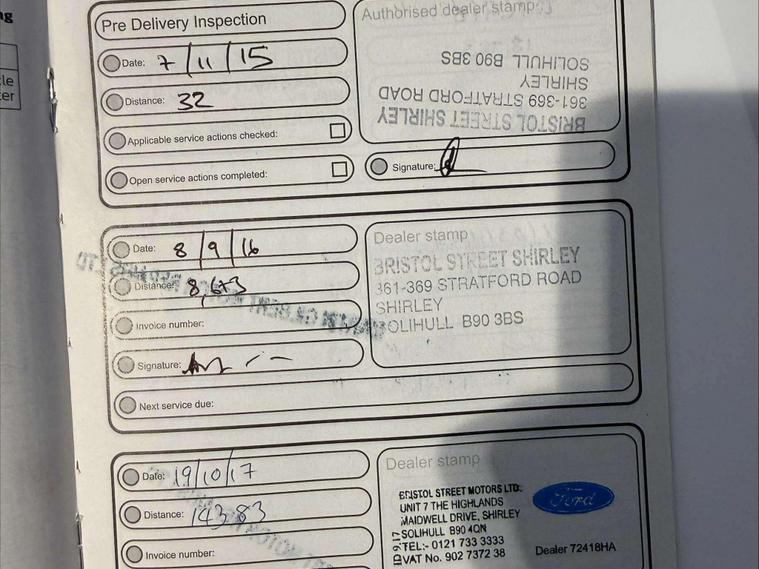 Pre Delivery Inspection
Date: 7/11/15
Distance: 32
Applicable service actions checked:
Open service actions completed:
Authorised dealer stamp
BRISTOL STREET SHIRLEY
361-369 STRATFORD ROAD
SHIRLEY
SOLIHULL B90 3BS
Signature:
Date: 8/9/16
Distance: 8,673
Invoice number:
Signature:
Next service due:
Dealer stamp
BRISTOL STREET SHIRLEY
361-369 STRATFORD ROAD
SHIRLEY
SOLIHULL B90 3BS
Date: 19/10/17
Distance: 14383
Invoice number:
Dealer stamp
BRISTOL STREET MOTORS LTD.
UNIT 7 THE HIGHLANDS
MAIDWELL DRIVE, SHIRLEY
SOLIHULL B90 4QN
TEL:- 0121 733 3333
VAT No. 902 7372 38
Ford
Dealer 72418HA